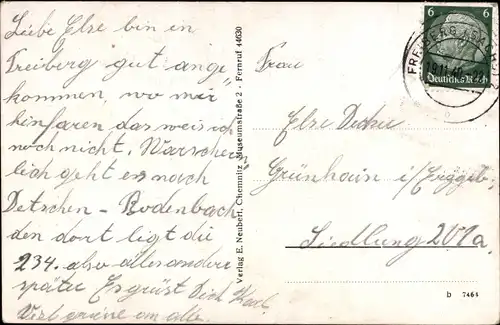 Liebe Else bin in
Freiberg gut ange
kommen, wo mir
hinfaren das weis ich
noch nicht. Warschein
lich geht es nach
Detschen - Bodenbach
den dort ligt die
234. also alles andere
später Es grüst Dich Karl
Viel grüse an alle.
Verlag E. Neubert, Chemnitz, Museumstraße 2 - Fernruf 44630
6 6
Deutsches Reich
FREIBERG
Frau
Else Decker
Grünhain i/Erzgeb.
Siedlung 201a.
b 7464